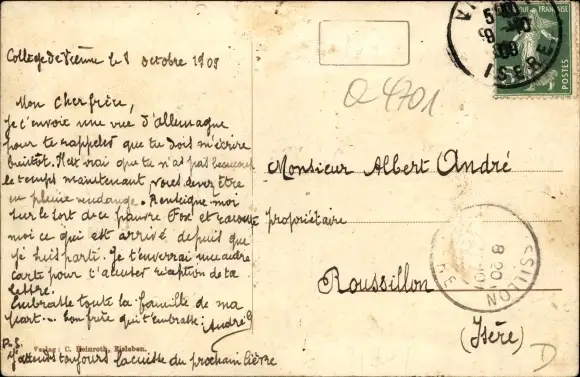 Collège de Vienne le 8 octobre 1909
Mon cher frère,
Je t'envoie une vue d'Allemagne
pour te rappeler que tu dois m'écrire
bientôt. Il est vrai que tu n'as pas beaucoup
le temps maintenant vous devez être
en pleine vendange. Renseigne moi
sur le sort de ce pauvre Fox et raconte
moi ce qui est arrivé depuis que
je suis parti. Je t'enverrai une autre
carte pour t'accuser réception de ta
lettre.
Embrasse toute la famille de ma
part. Ton frère qui t'embrasse : André
P.S.
J'attends toujours la cuisse du prochain lièvre
Verlag: C. Heimroth, Eisleben.
O 4701
Monsieur Albert André
propriétaire
Roussillon
(Isère)
FRANÇAISE
POSTES
5
9-10
09
ISERE
8 20
SSILLON
D